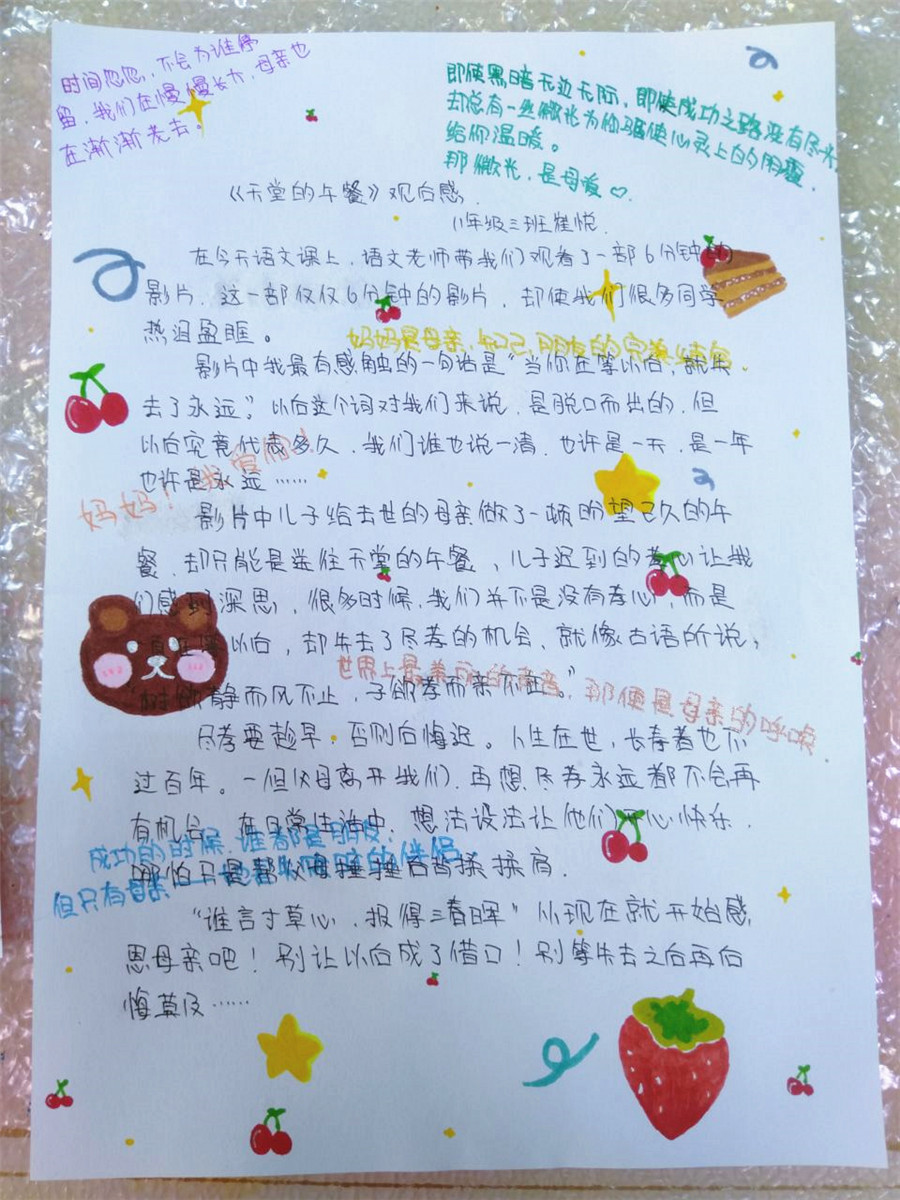 时间忽忽，不会为谁停
留，我们在慢慢长大，母亲也
在渐渐老去。
即使黑暗无边无际，即使成功之路没有尽头
却总有一丝微光为你驱使心灵上的阴霾，
给你温暖。
那微光，是母爱♡
《天堂的午餐》观后感.
八年级三班崔悦.
在今天语文课上，语文老师带我们观看了一部6分钟的
影片，这一部仅仅6分钟的影片，却使我们很多同学
热泪盈眶。
妈妈是母亲，知己，朋友的完美结合.
影片中我最有感触的一句话是“当你在等以后，就失
去了永远”。以后这个词对我们来说，是脱口而出的，但
以后究竟代表多久，我们谁也说一清，也许是一天，是一年
也许是永远……
妈妈！我爱你！
影片中儿子给去世的母亲做了一顿盼望已久的午
餐，却只能是送往天堂的午餐，儿子迟到的孝心让我
们感到深思，很多时候，我们并不是没有孝心，而是
一直在等以后，却失去了尽孝的机会、就像古语所说，
“树欲静而风不止，子欲孝而亲不在”
世界上最美丽的声音，那便是母亲的呼唤
尽孝要趁早，否则后悔迟。人生在世，长寿者也不
过百年。一但父母离开我们，再想尽孝永远都不会再
有机会，在日常生活中，想法设法让他们开心快乐，
哪怕只是帮父母捶捶后背揉揉肩.
成功的时候，谁都是朋友.
但只有母亲——她是失败时的伴侣.
“谁言寸草心，报得三春晖”从现在就开始感
恩母亲吧！别让以后成了借口！别等失去之后再后
悔莫及……